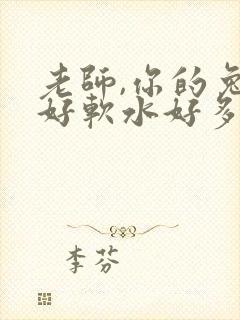 老師,你的兔
好軟水好多
李芬